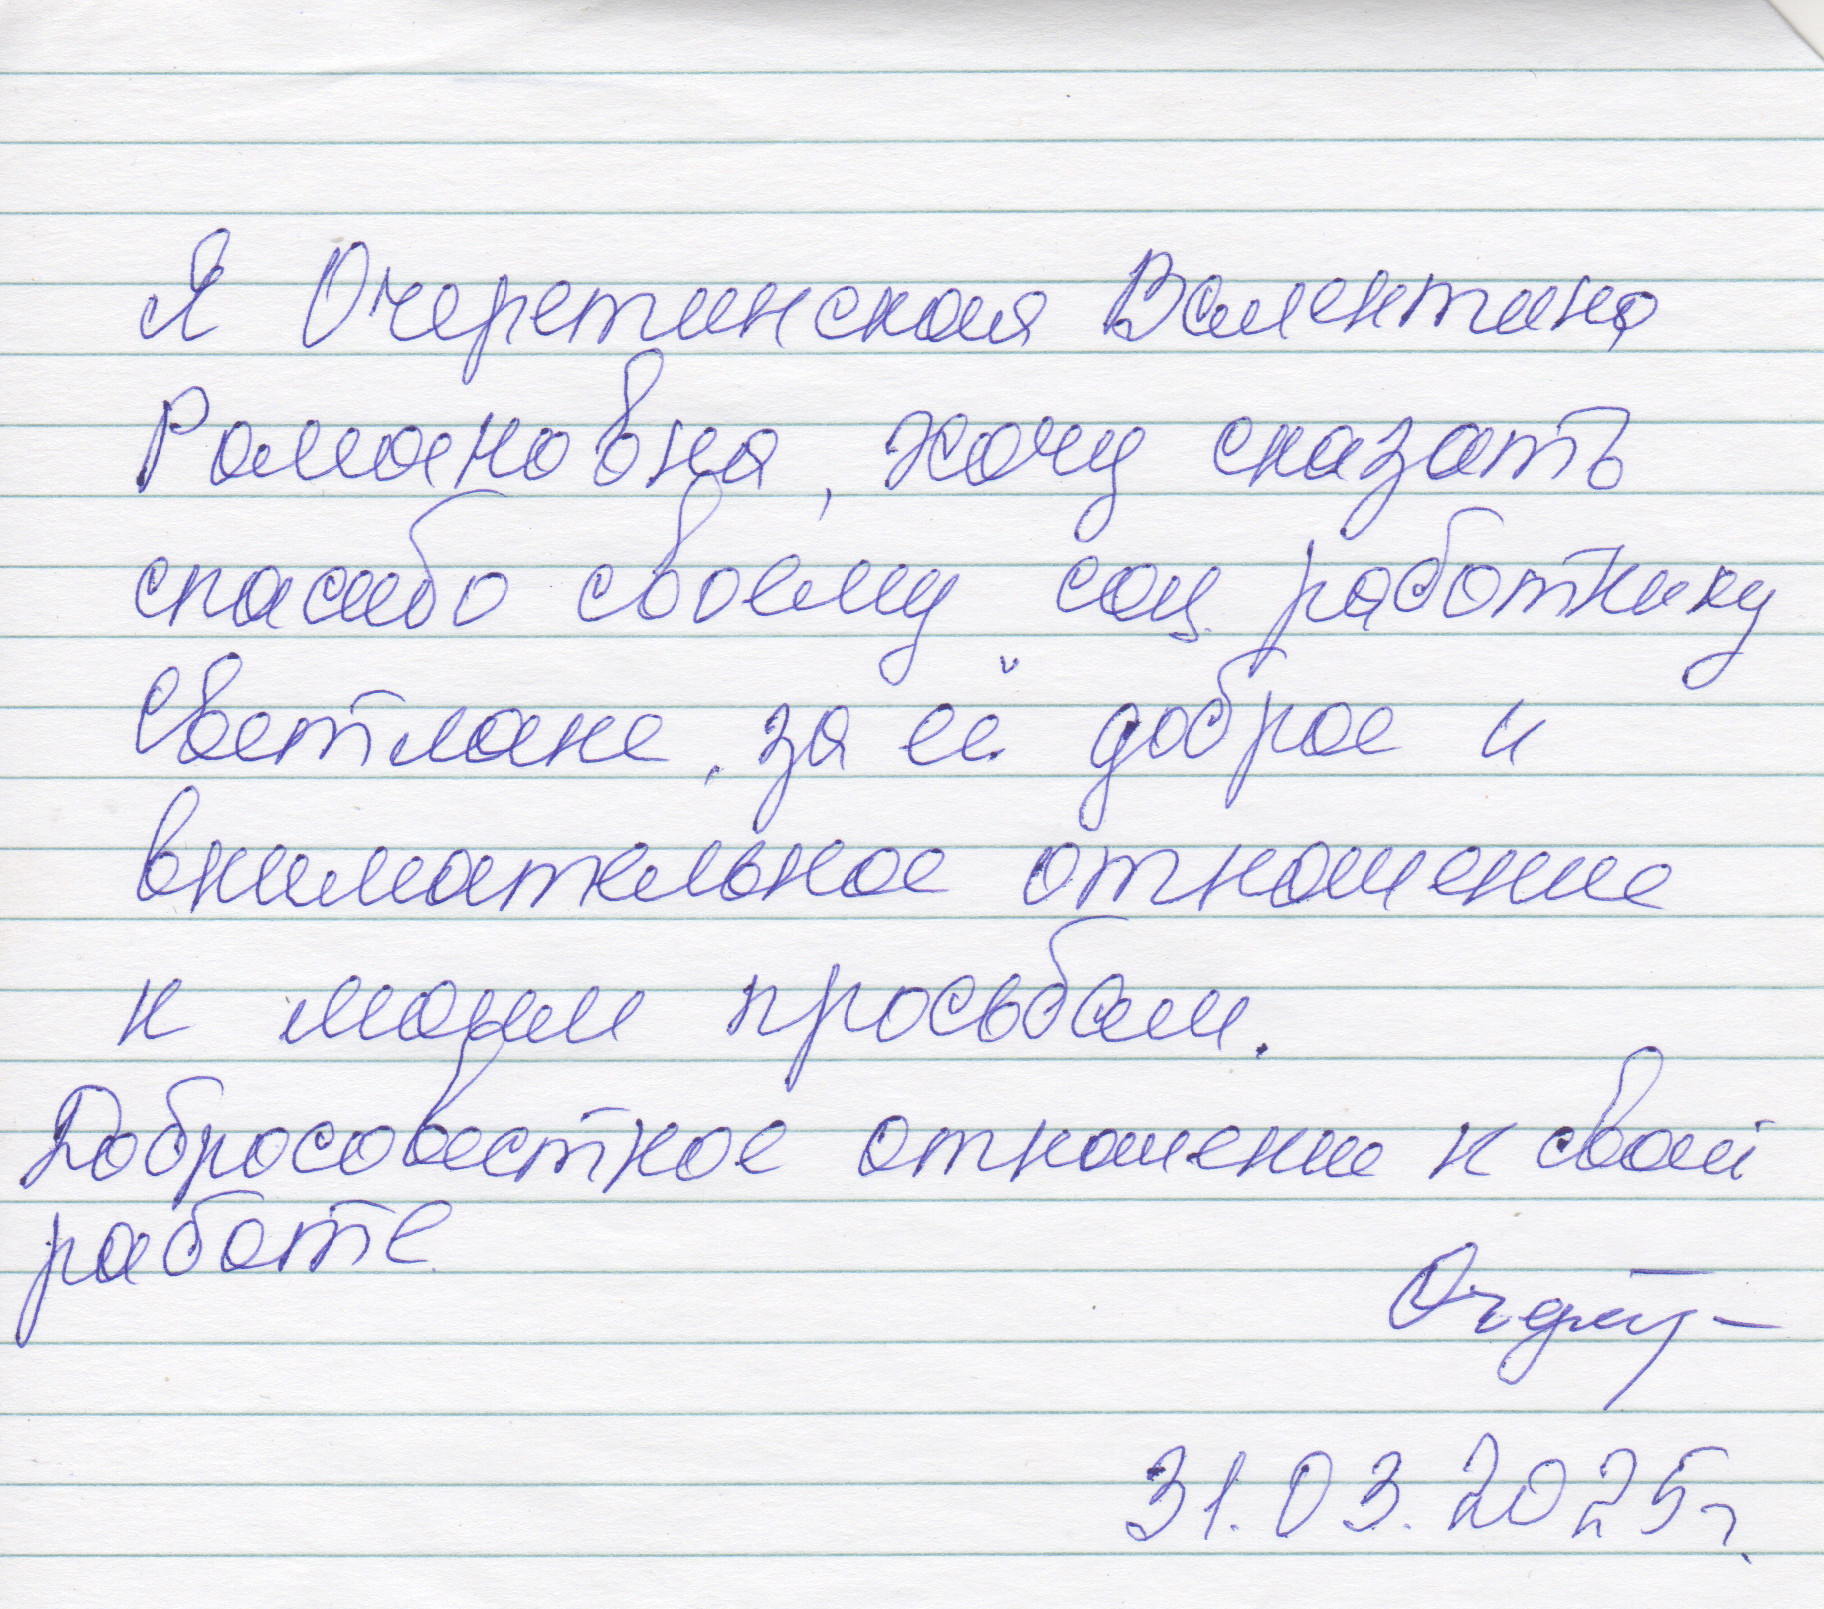 Я Очеретинская Валентина
Романовна, хочу сказать
спасибо своему соц. работнику
Светлане, за её доброе и
внимательное отношение
к моим просьбам.
Добросовестное отношение к своей
работе.
31.03.2025г.